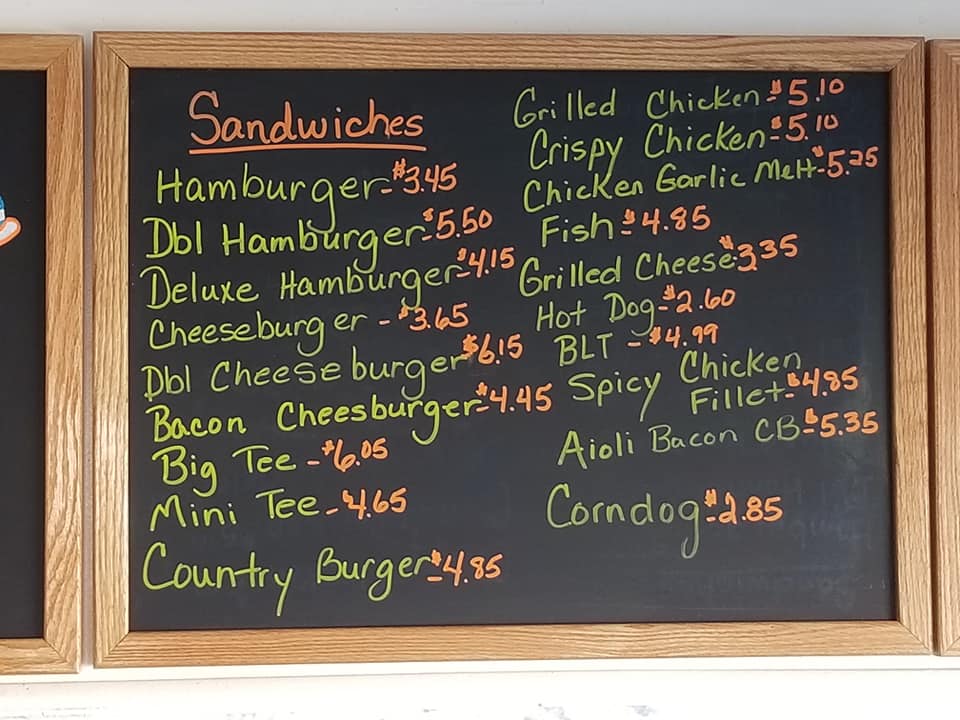 Sandwiches
Hamburger-$3.45
Dbl Hamburger-$5.50
Deluxe Hamburger-$4.15
Cheeseburger-$3.65
Dbl Cheeseburger-$6.15
Bacon Cheesburger-$4.45
Big Tee-$6.05
Mini Tee-$4.65
Country Burger-$4.85
Grilled Chicken-$5.10
Crispy Chicken-$5.10
Chicken Garlic Melt-$5.25
Fish-$4.85
Grilled Cheese-$3.35
Hot Dog-$2.60
BLT-$4.99
Spicy Chicken
Fillet-$4.85
Aioli Bacon CB-$5.35
Corndog-$2.85